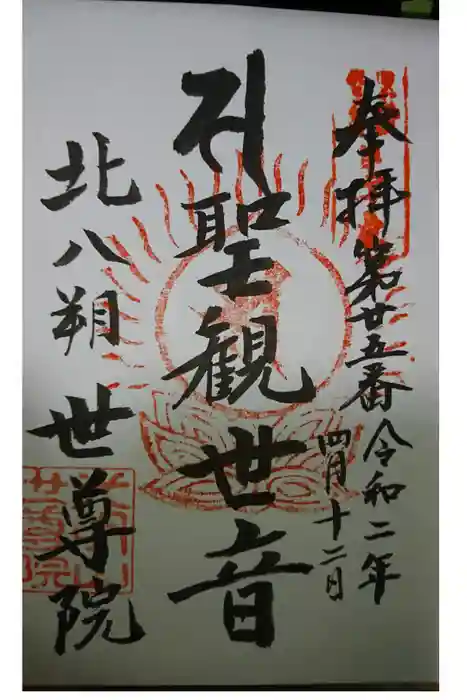 奉拝 第廿五番
令和二年
四月十二日
聖観世音
北八朔 世尊院